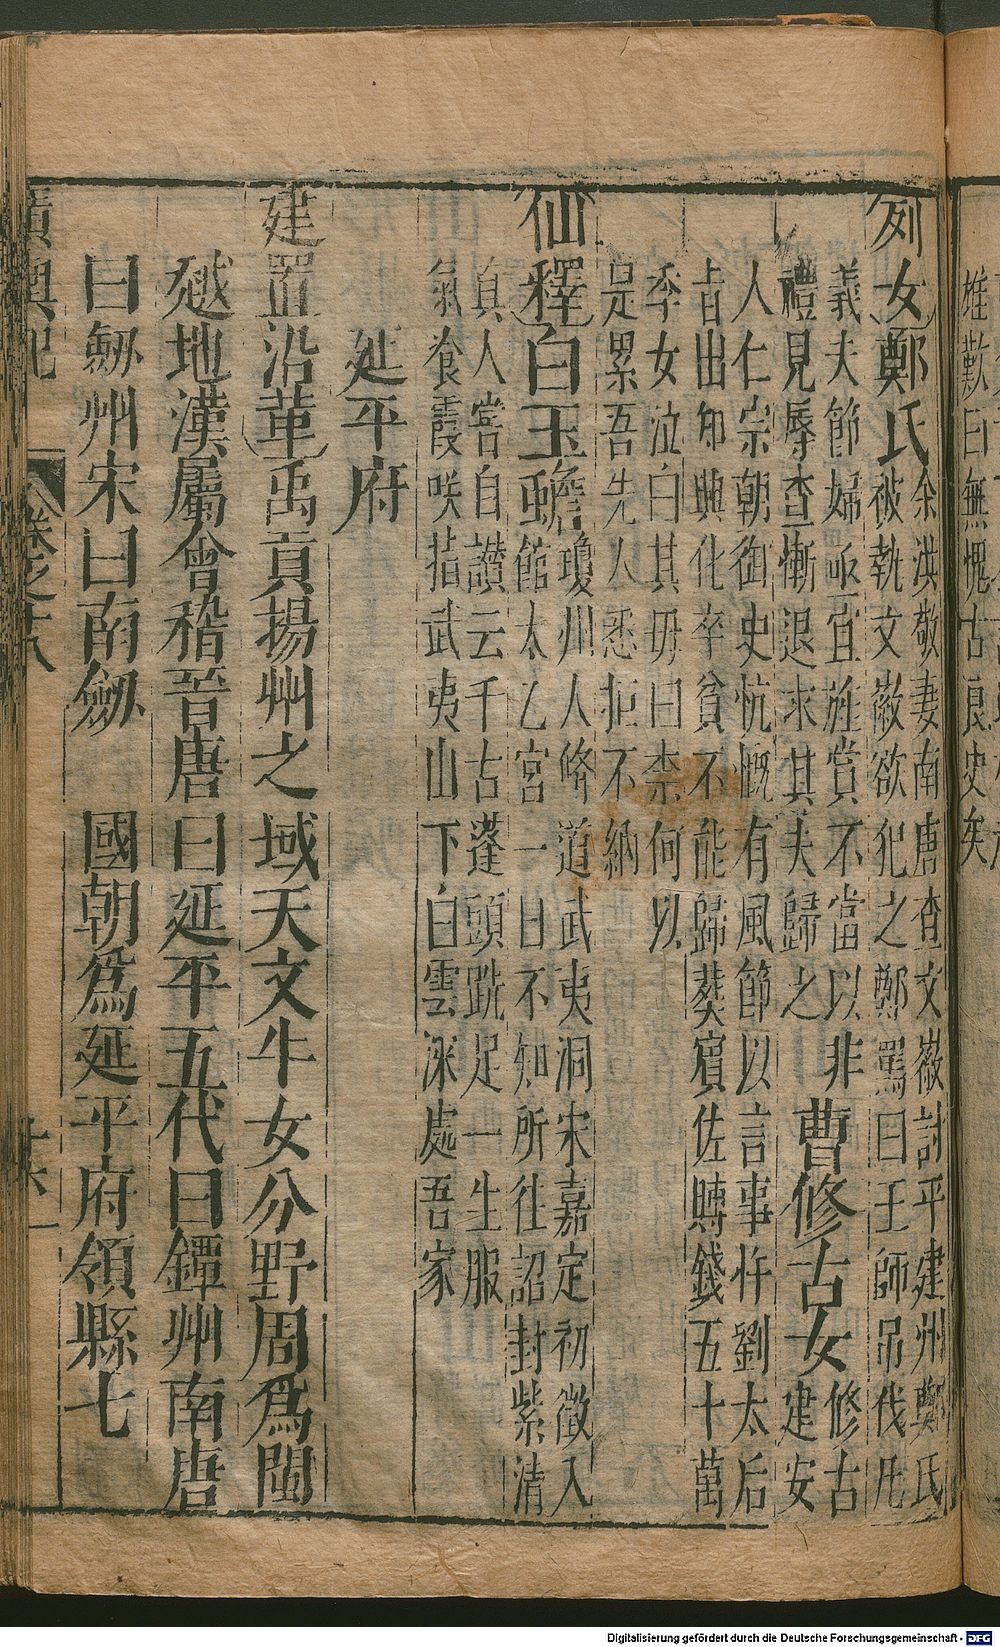 雄歎曰無愧古良史矣
列女鄭氏余洪敬妻南唐查文徽討平建州鄭氏
被執文徽欲犯之鄭罵曰王師吊伐凡
義夫節婦亟宜旌賞不當以非
禮見辱查慚退求其夫歸之
曹修古女修古
建安
人仁宗朝御史忼慨有風節以言事忤劉太后
旨出知興化卒貧不能歸葬賓佐賻錢五十萬
季女泣白其毋曰柰何以
是累吾先人悉拒不納
仙釋白玉蟾瓊州人脩道武夷洞宋嘉定初徵入
館太乙宮一日不知所往詔封紫清
真人嘗自讚云千古蓬頭跣足一生服
氣飡霞咲指武夷山下白雲深處吾家
延平府
建置沿革禹貢揚州之域天文牛女分野周為閩
越地漢屬會稽晉唐曰延平五代曰鐔州南唐
曰劒州宋曰南劒　國朝為延平府領縣七
廣輿記　卷之十八
Digitalisierung gefördert durch die Deutsche Forschungsgemeinschaft - DFG